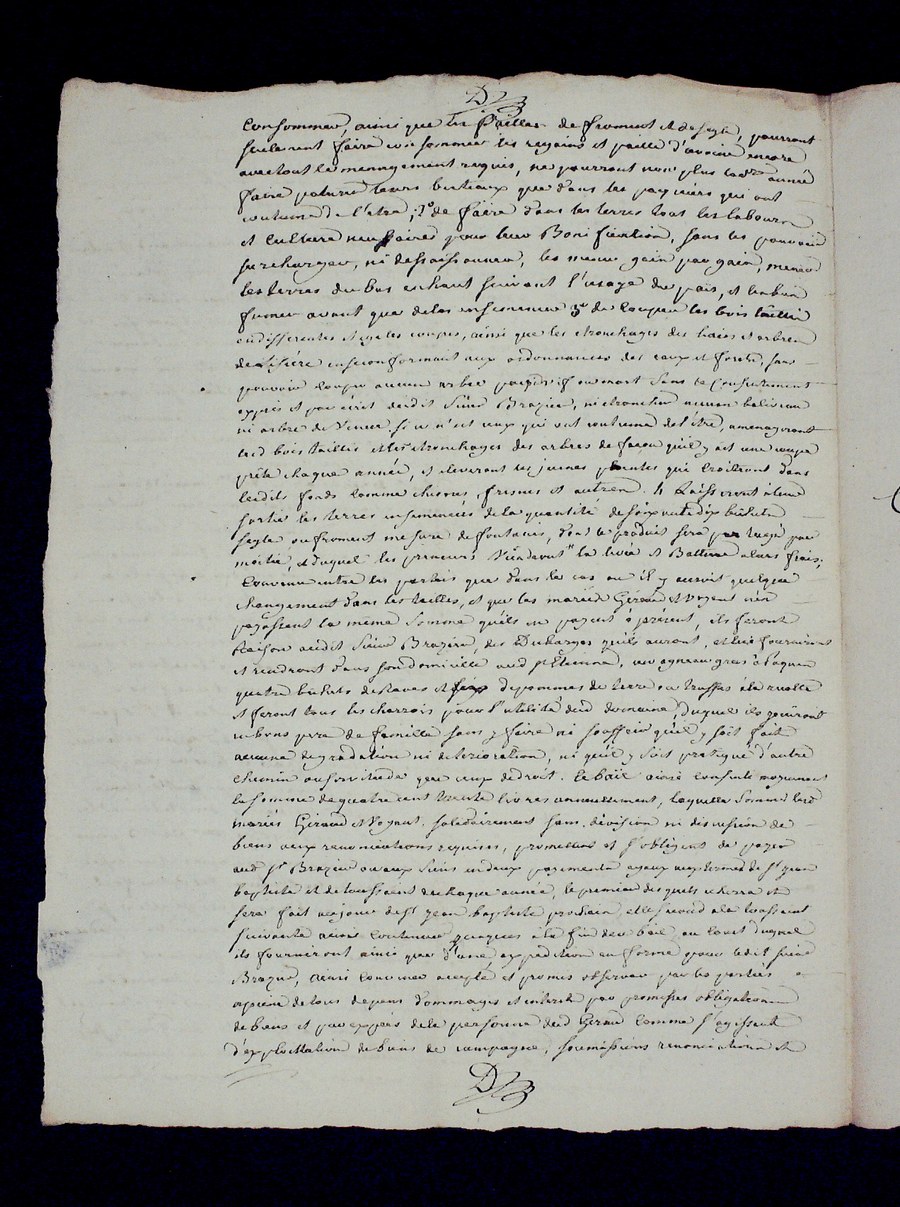 Consommer, ainsi que les Pailles de froment et de segle, pourront
seulement faire consommer les regains et paille d'avoine encore
avec tout le menagement requis, ne pourront non plus lad. année
faire paturer leurs bestiaux que dans les paquiers qui ont
coutume de l'etre; 2° de faire dans les terres tous les labours
et Culture necessaires pour leur Bonification, sans les pouvoir
surcharger, ni dessaisonner, les mener gain par gain, mener
les terres du bas en haut suivant l'usage du pais, et les bien
fumer avant que de les ensemencer 3° de Couper les bois taillis
en differentes et egales coupes, ainsi que les etronchages des haies et arbres
de lisiere en se conformant aux ordonnances des eaux et forets, sans
pouvoir couper aucun arbre par pied vif ou mort sans le Consentement
exprès et par écrit dudit Sieur Brazier, ni etroncher aucun baliveau
ni arbre de si ce n'est ceux qui ont coutume de l'être, amenageront
les d. bois taillis et les etronchages des arbres de façon qu'il y ait une coupe
prête chaque année, et eleveront les jeunes plantes qui croitront dans
lesdits fonds comme chenes, fresnes et autres. 4° Laisseront à leur
sortie les terres ensemencées de la quantité de soixante dix bichets
segle ou froment mesure de fontanès, dont le produit sera partagé par
moitié, et duquel les preneurs viendront la levée et Batture à leurs frais;
Convenu entre les parties que dans le cas ou il y auroit quelque
changement dans les tailles, et que les mariés Giraud et Voyant n'en
payassent la meme Somme qu'ils en payent à présent, ils feront
raison audit Sieur Brazier, des Decharges qu'ils auront, et lui fourniront
et rendront dans son domicille aud. St Etienne, un agneau gras à Paques
quatre bichets de Raves et six de pommes de terre ou truffes à la recolte
et feront tous les charrois pour l'utilité dud. domaine, duquel ils jouiront
en bons pere de famille sans y faire ni souffrir qu'il y soit fait
aucune degradation ni deterioration, ni qu'il y soit pratiqué d'autre
chemin ou servitude que ceux de droit. Le bail ainsi consenti moyennant
la somme de quatre cent trente livres annuellement, laquelle Somme lesd.
mariés Giraud et Voyant. solidairement sans division ni discussion de
biens aux renonciations requises, promettent et s'obligent de payer
aud. Sr Brazier ou aux Siens en deux payements egaux aux termes de St jean
baptiste et de toussaint de chaque année, le premier desquels echerra et
sera fait au jour de St jean baptiste prochain, et le second à la toussaint
suivante ainsi continuer jusques à la fin du Bail au cout duquel
ils fourniront ainsi que d'une expedition en forme pour ledit Sieur
Brazier, ainsi convenu accepté et promis observer par les parties a
a peine de tous depens dommages et interets par promesses obligations
de biens et par exprès de la personne dud. Giraud comme s'agissant
d'exploitation de biens de campagne, soumissions renonciations et